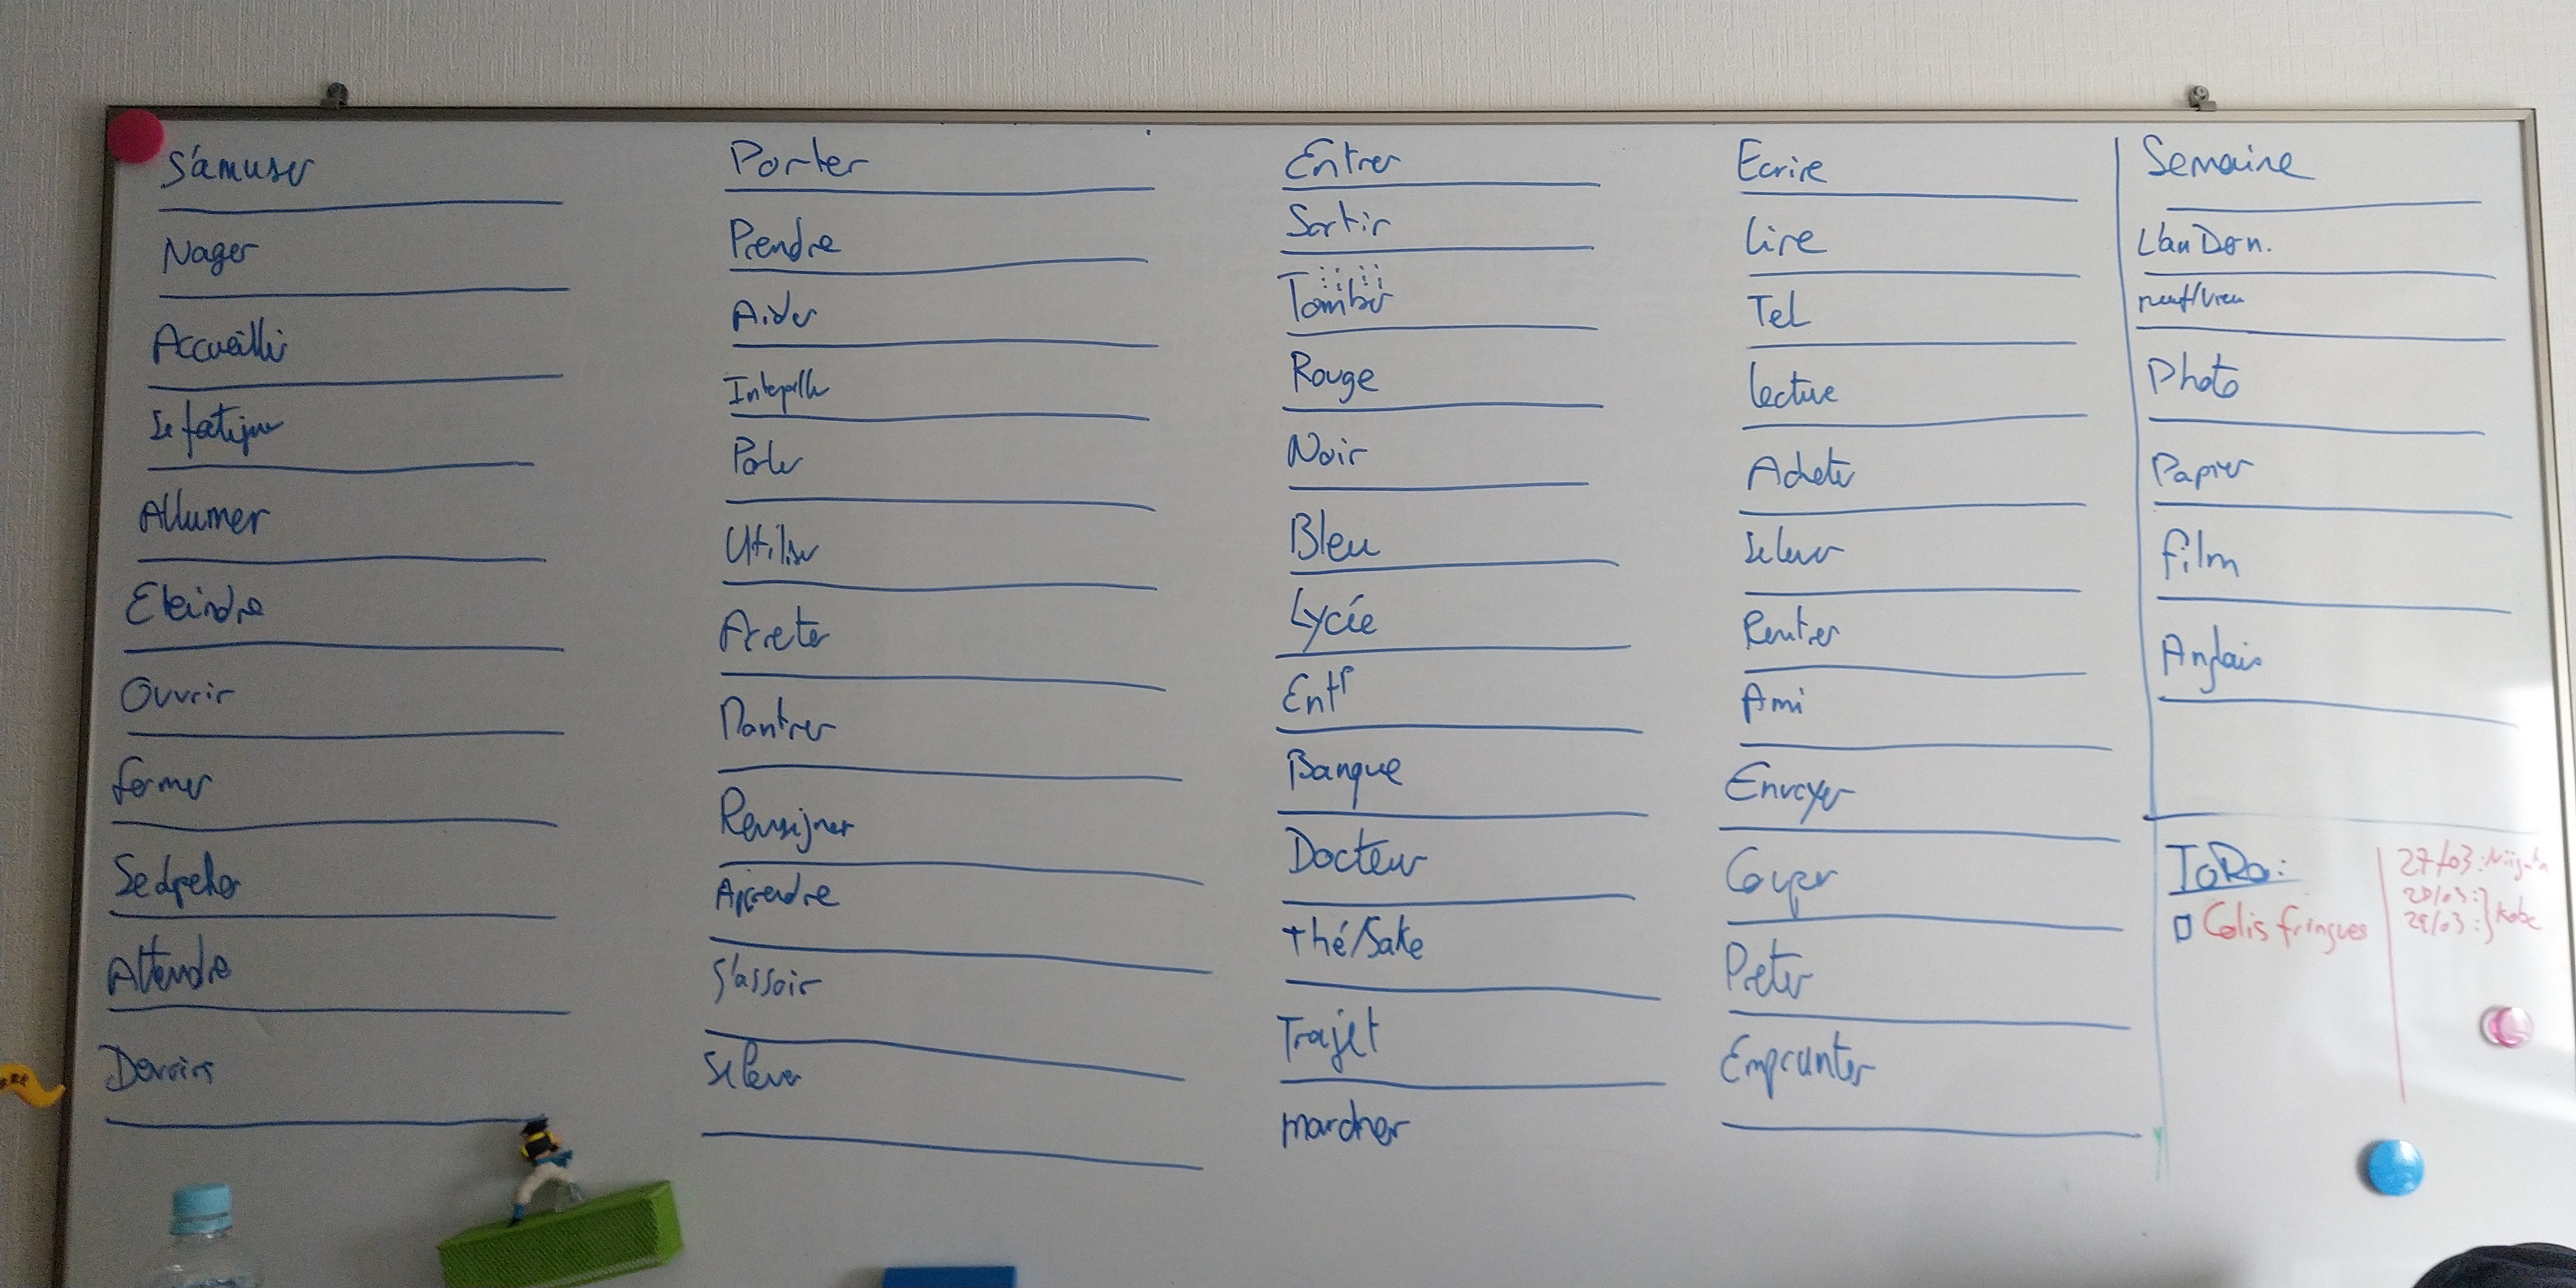 S'amuser
Nager
Accueillir
Se fatiguer
Allumer
Eteindre
Ouvrir
Fermer
Attendre
Devoirs
Porter
Prendre
Aider
Parler
Utiliser
Areter
Montrer
Renseigner
Apprendre
S'assoir
Se lever
Entrer
Sortir
Tomber
Rouge
Noir
Bleu
Lycée
Entr
Banque
Docteur
Thé/Sake
Trajet
marcher
Ecrire
Lire
Tel
Lecture
Acheter
Se lever
Rentrer
Ami
Envoyer
Couper
Preter
Emprunter
Semaine
L'an Der n.
neuf/vieu
Photo
Papier
Film
Anglais
ToDo:
Colis fringues
27/03:
28/03:
29/03: Kobe